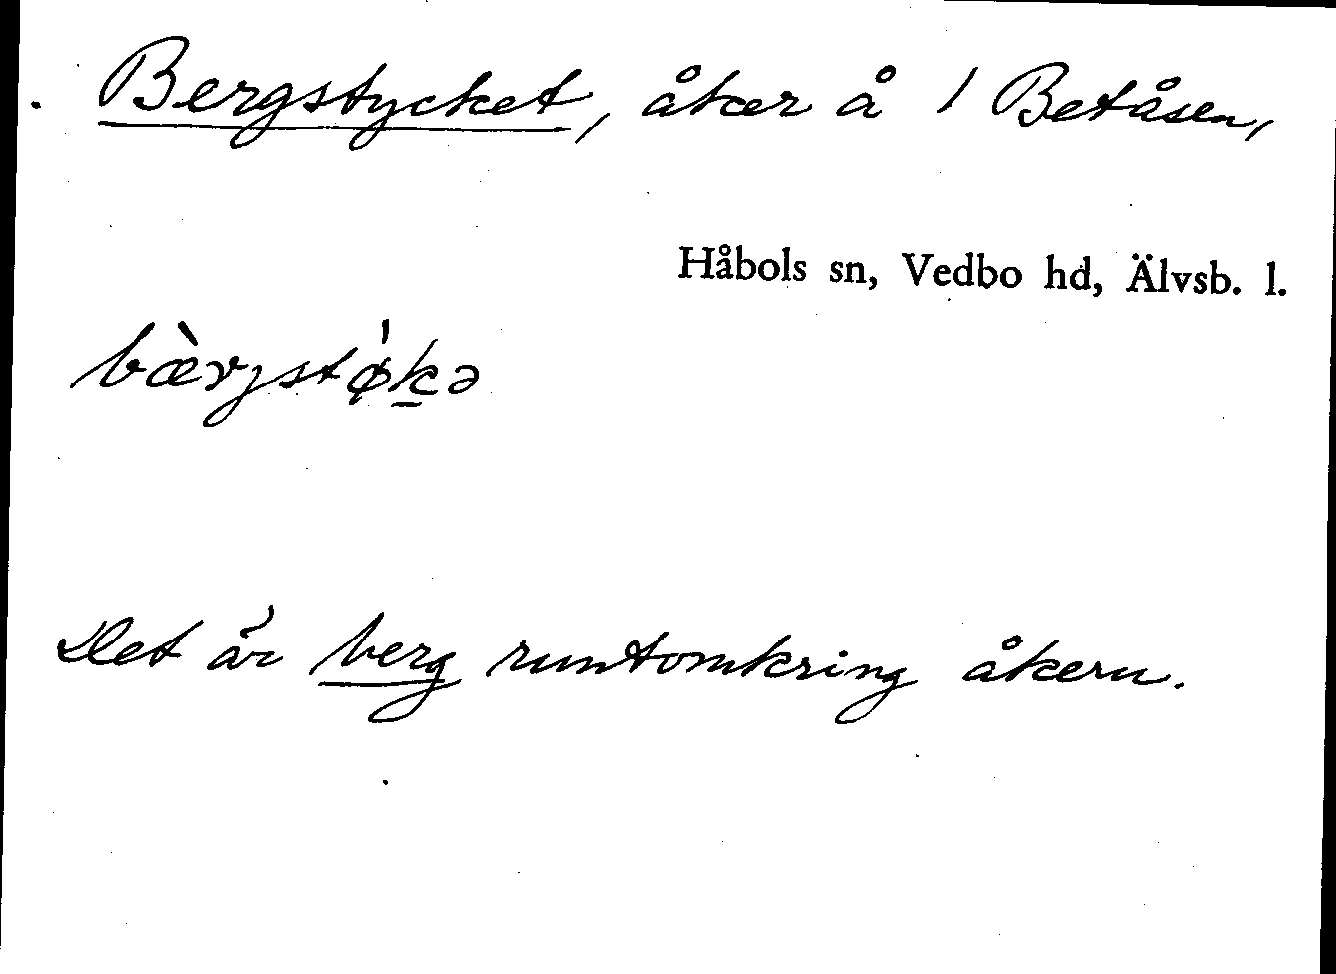 Bergstycket, åker å 1 Betåsen,
Håbols sn, Vedbo hd, Älvsb. l.
bæ̀rjstø̍k̠ə
Det är berg runtomkring åkern.